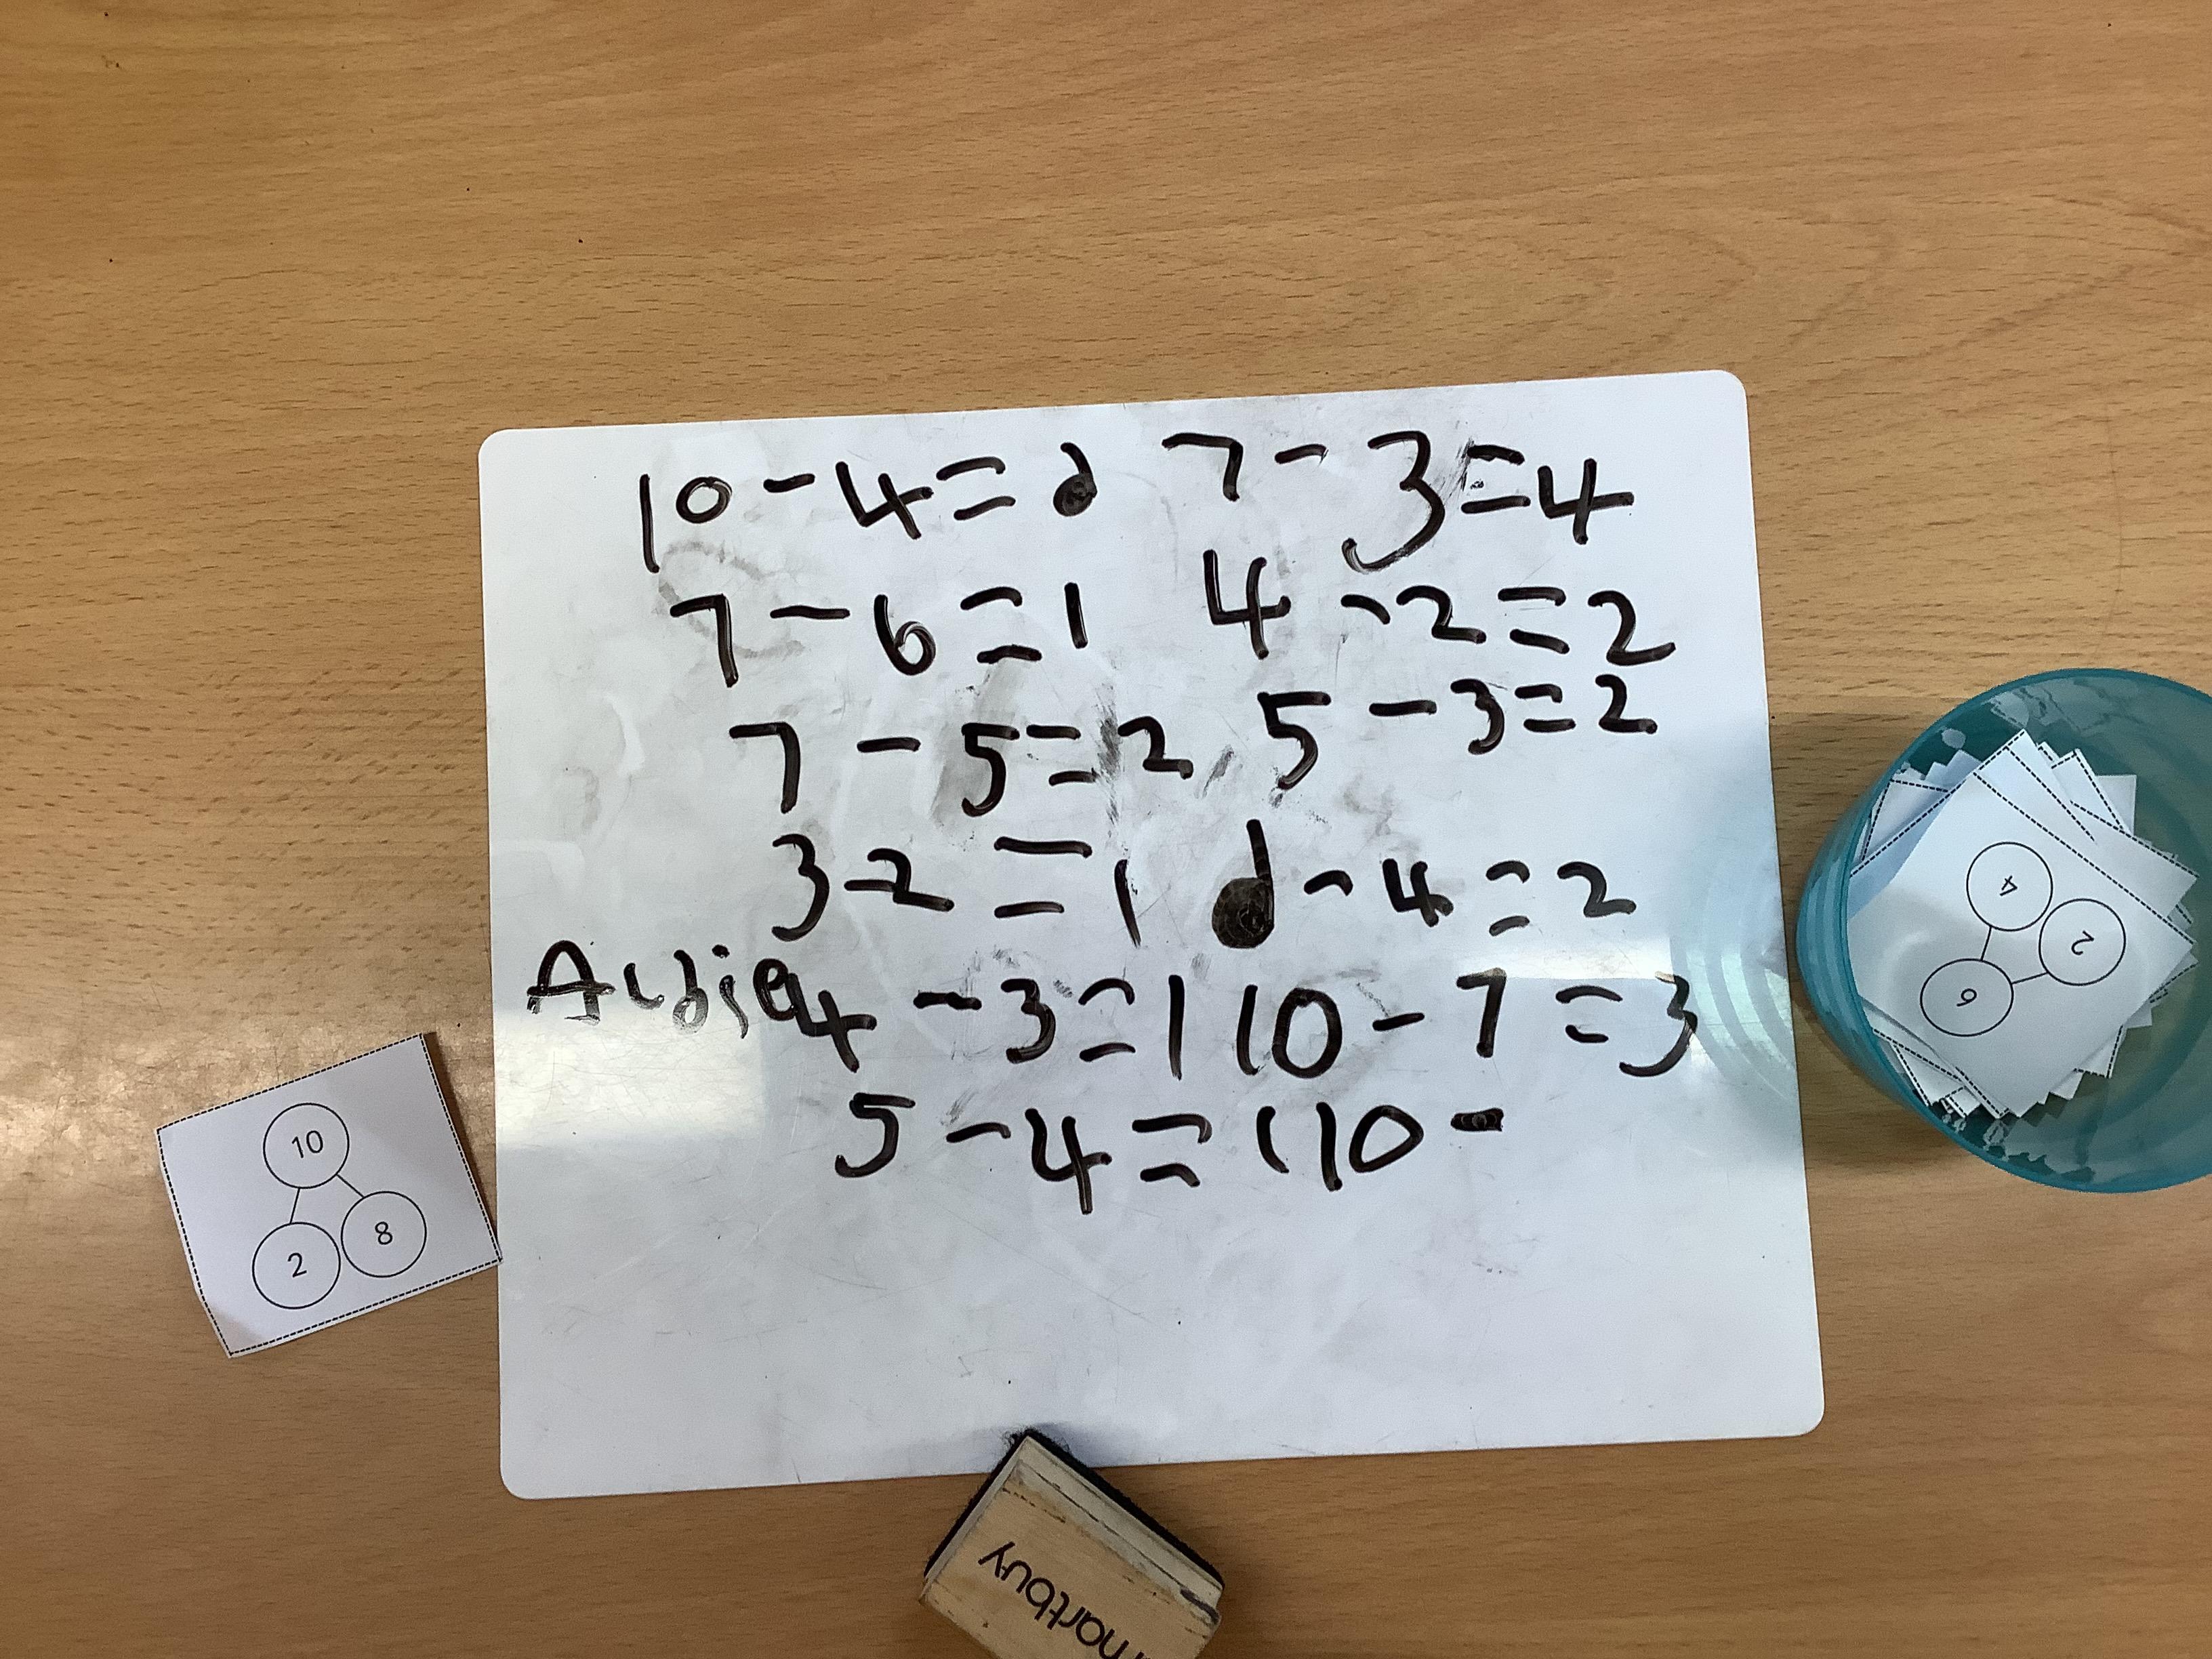 10 - 4 = 6 7 - 3 = 4
7 - 6 = 1 4 - 2 = 2
7 - 5 = 2 5 - 3 = 2
3 - 2 = 1 6 - 4 = 2
4 - 3 = 1 10 - 7 = 3
5 - 4 = 1 10 -
10
2 8
4
2
6